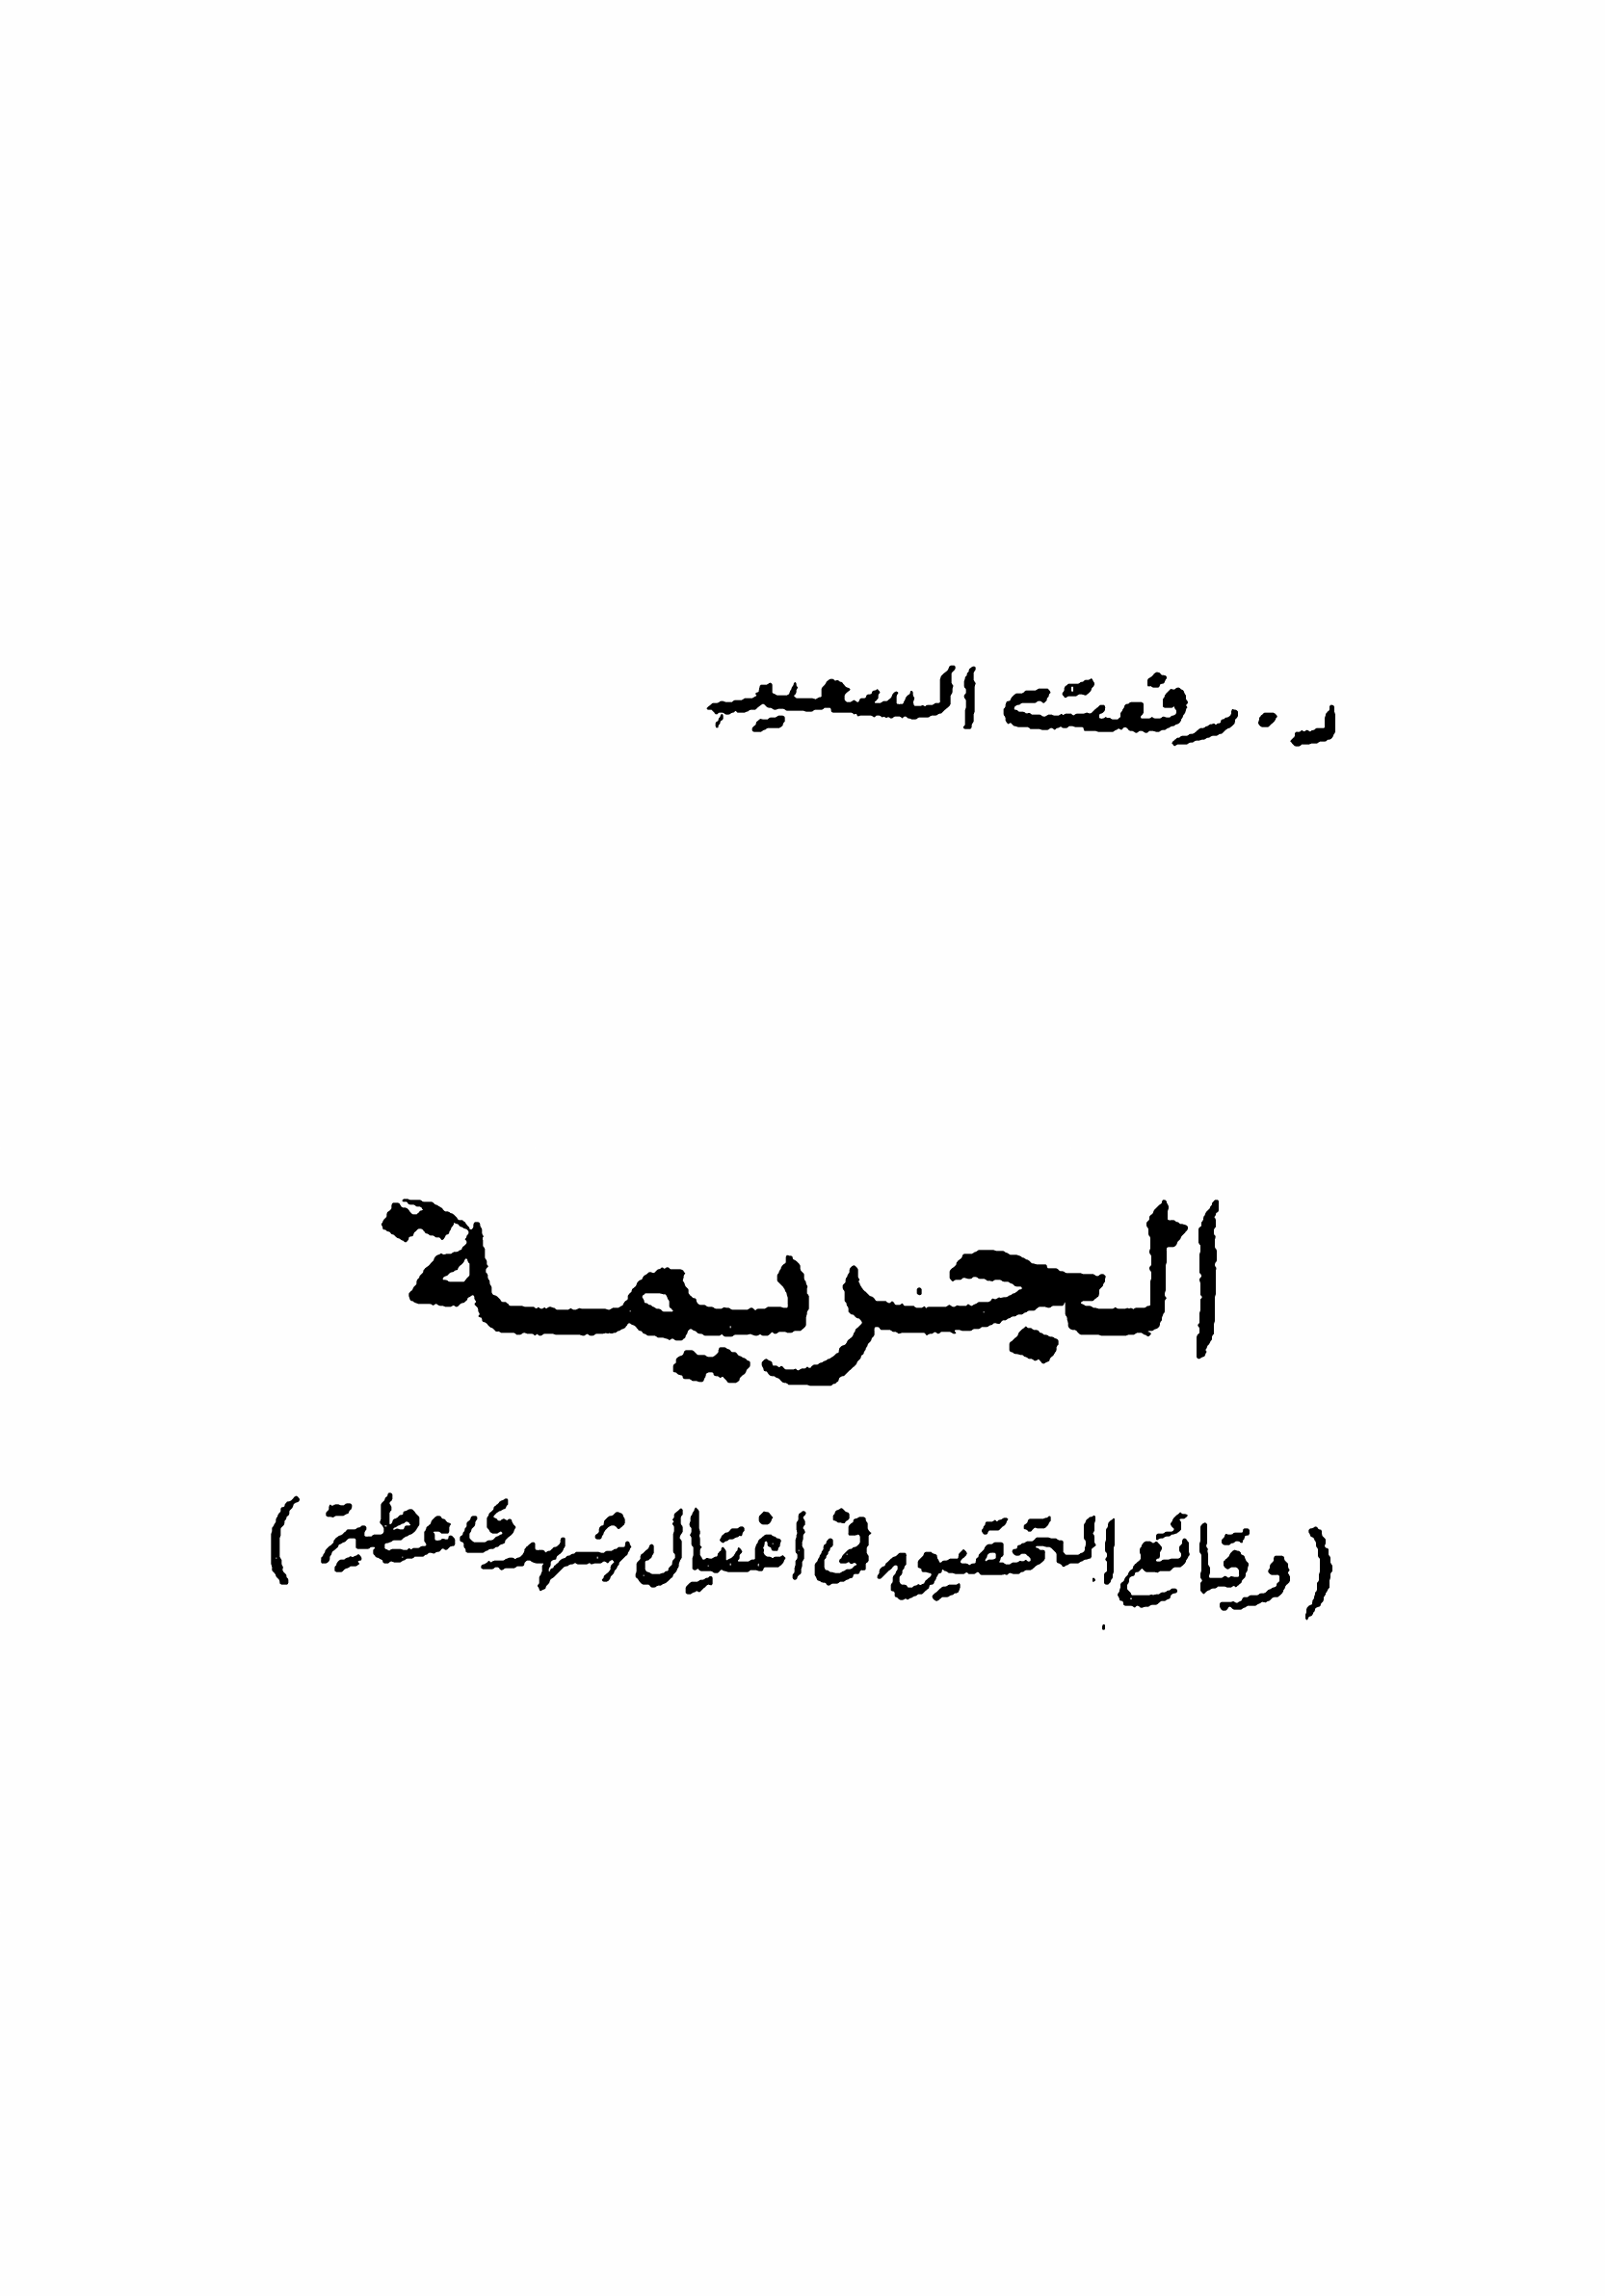 د. رفعت السعيد
الجريمة
(وقائع التحقيق فى اغتيال شهدى عطية)